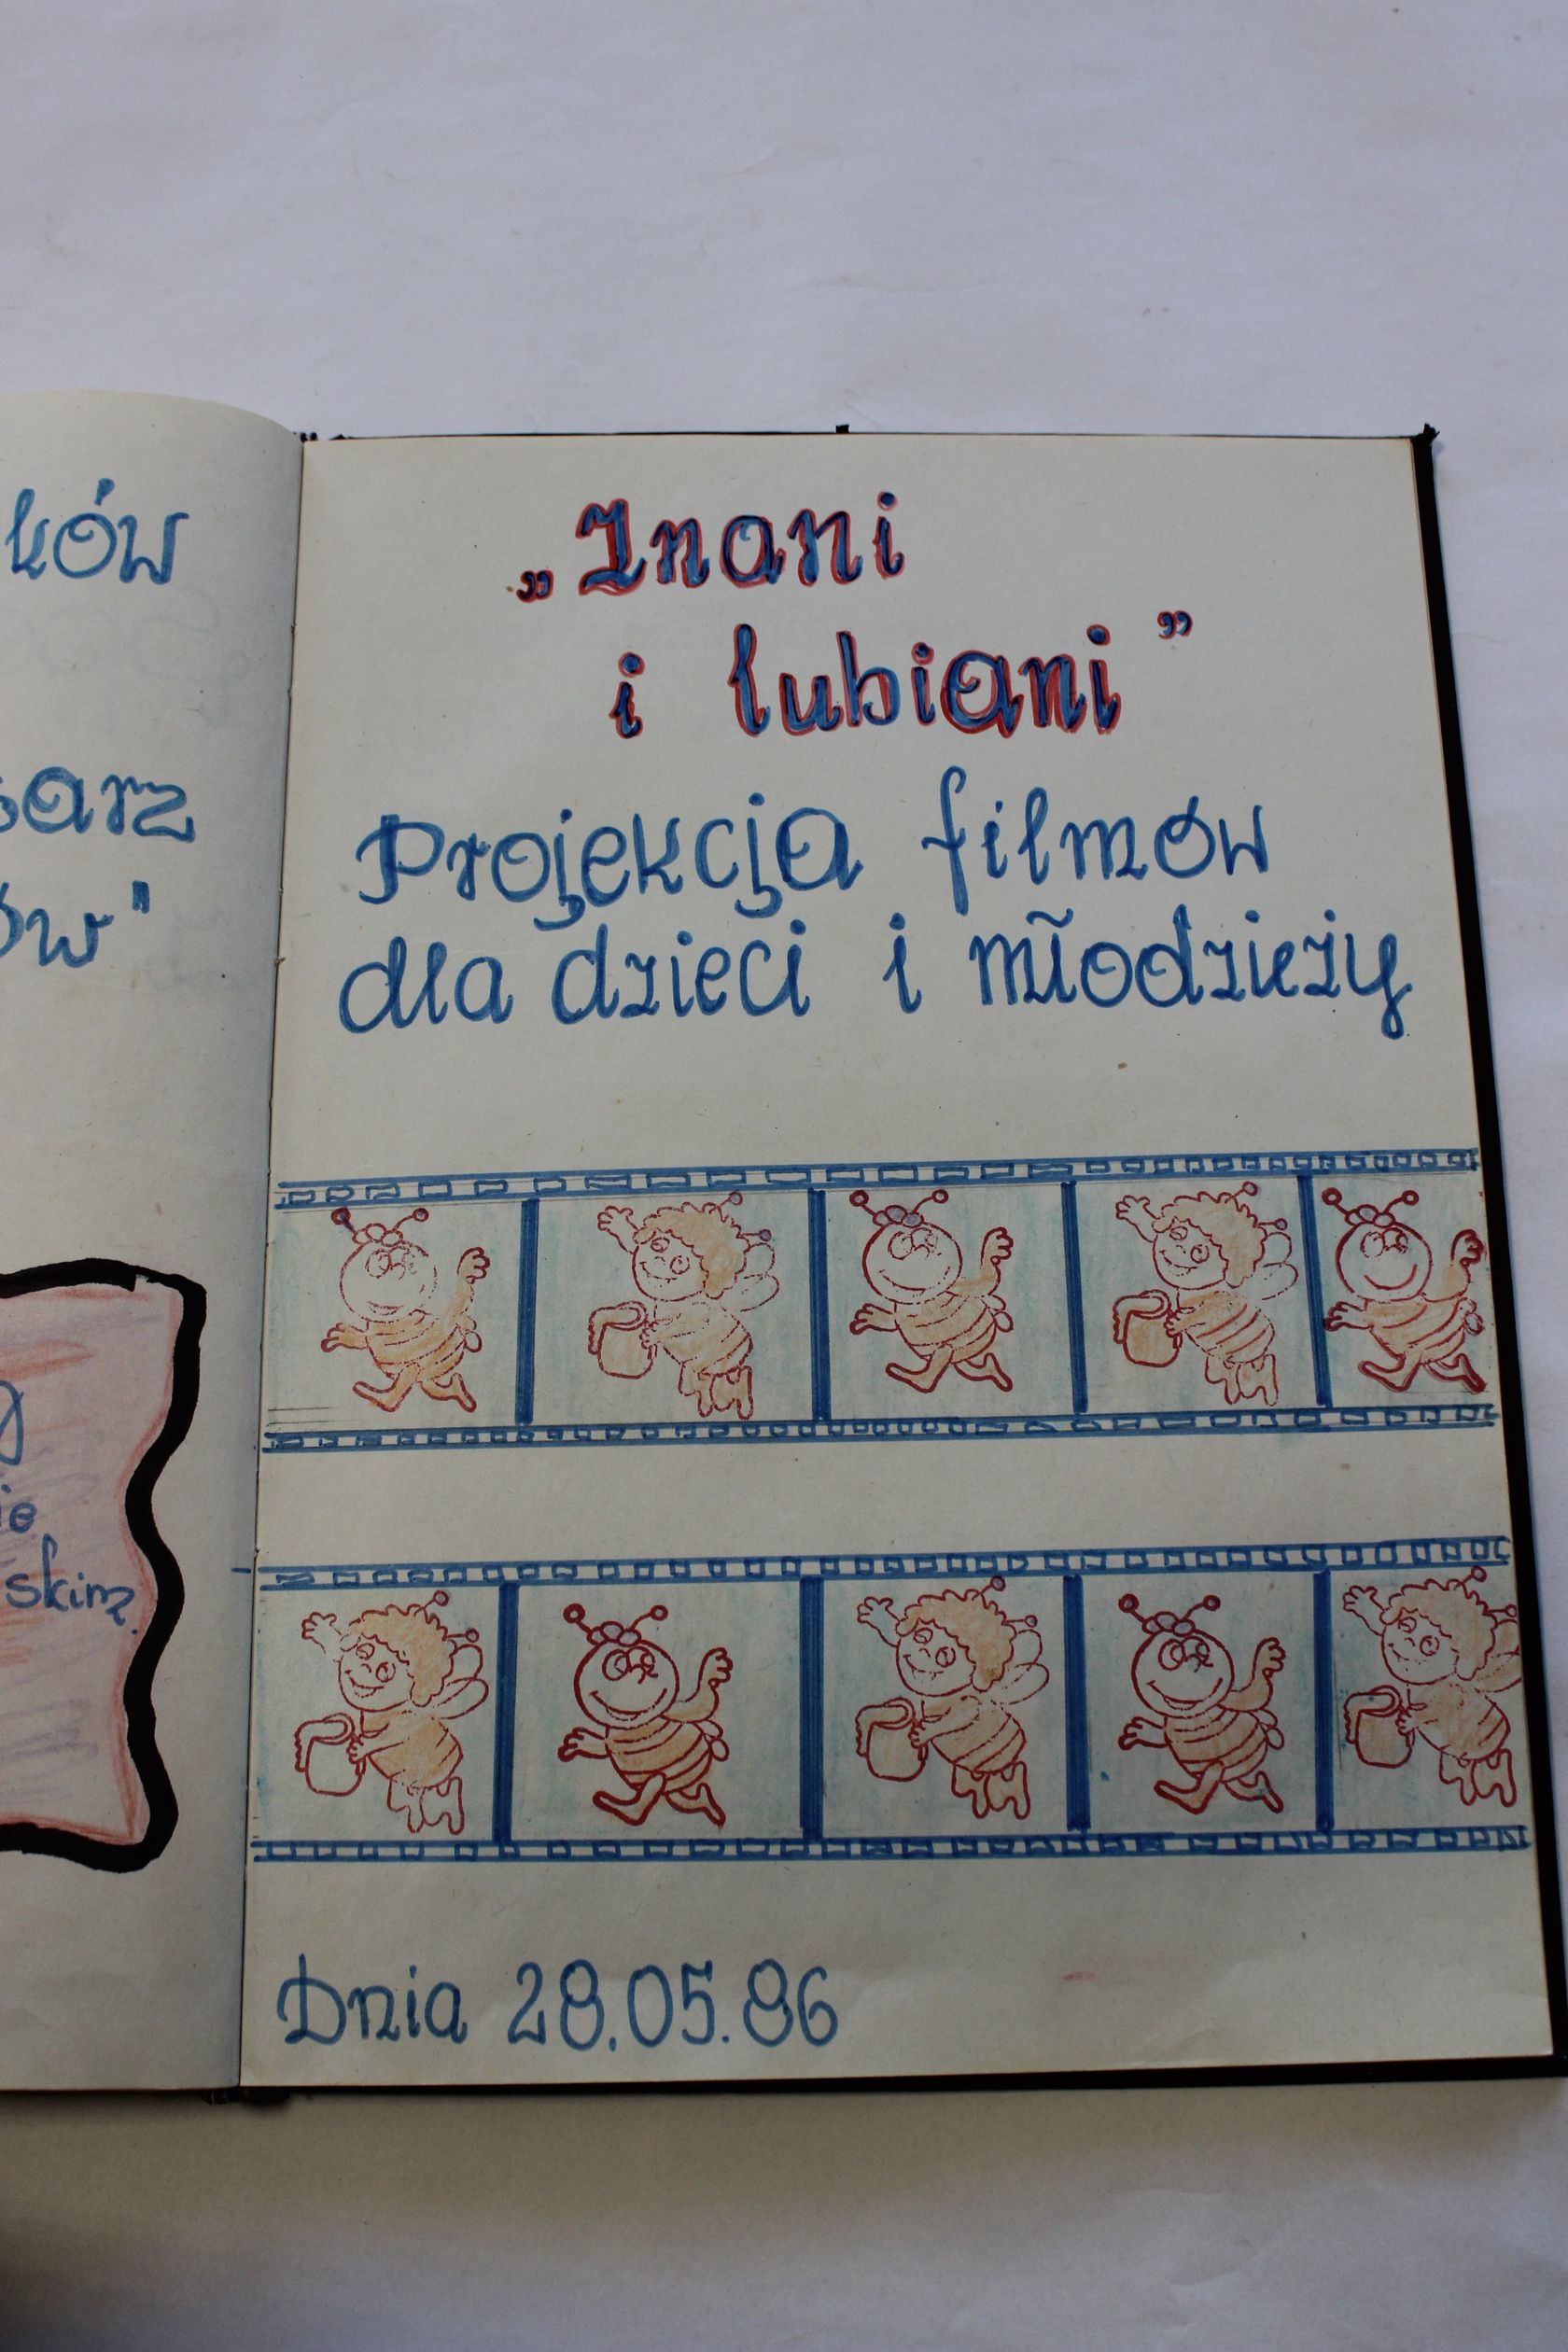 ków
arz
ów"
ie
skim.
„Znani
i lubiani”
Projekcja filmów
dla dzieci i młodzieży
Dnia 28.05.86